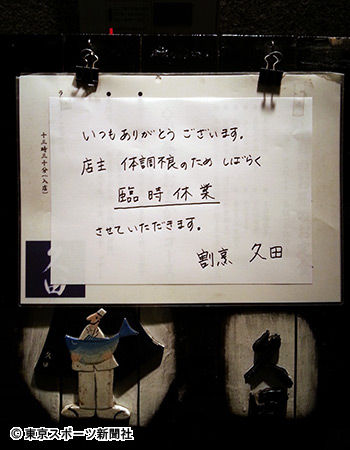 いつもありがとうございます。
店主 体調不良のため しばらく
臨時休業
させていただきます。
割烹 久田
十三時三十分(入店)
久田
© 東京スポーツ新聞社